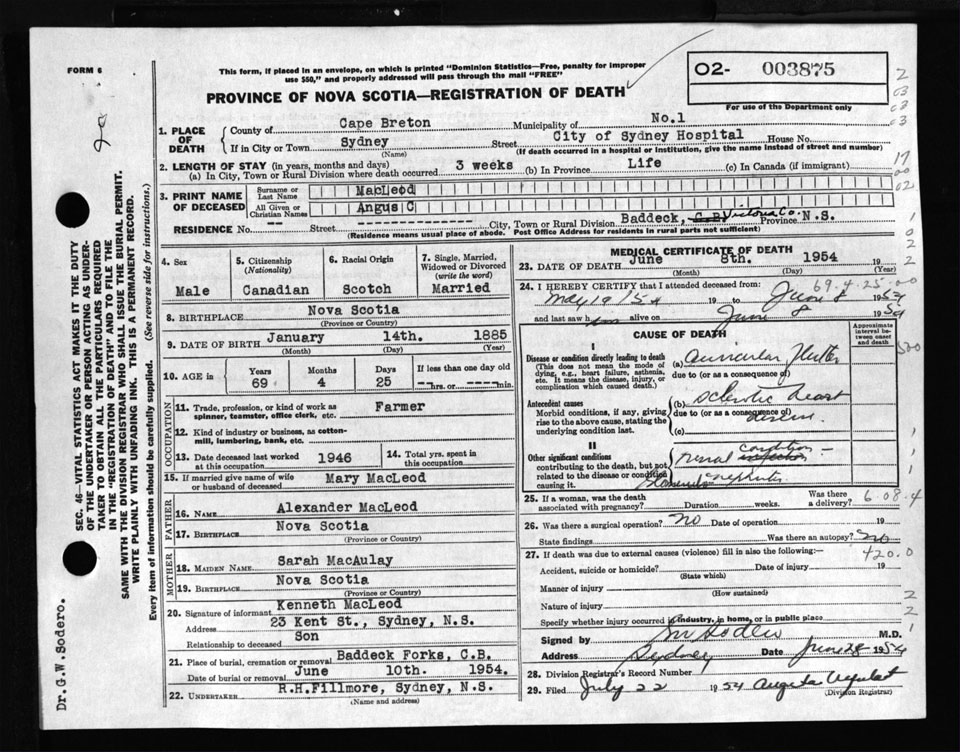 FORM 6
This form, if placed in an envelope, on which is printed "Dominion Statistics—Free, penalty for improper
use $50," and properly addressed will pass through the mail "FREE"
PROVINCE OF NOVA SCOTIA—REGISTRATION OF DEATH
O2- 003875
For use of the Department only
1. PLACE OF DEATH
County of Cape Breton Municipality of No.1
If in City or Town Sydney Street City of Sydney Hospital House No.
(Name) (If death occurred in a hospital or institution, give the name instead of street and number)
2. LENGTH OF STAY (in years, months and days)
(a) In City, Town or Rural Division where death occurred 3 weeks (b) In Province Life (c) In Canada (if immigrant)
3. PRINT NAME OF DECEASED
Surname or Last Name MacLeod
All Given or Christian Names Angus C
RESIDENCE No. -- Street ---- City, Town or Rural Division Baddeck, C.B. Victoria Co. Province N.S.
(Residence means usual place of abode. Post Office Address for residents in rural parts not sufficient)
4. Sex
Male
5. Citizenship (Nationality)
Canadian
6. Racial Origin
Scotch
7. Single, Married, Widowed or Divorced (write the word)
Married
8. BIRTHPLACE Nova Scotia
(Province or Country)
9. DATE OF BIRTH January 14th. 1885
(Month) (Day) (Year)
10. AGE in
Years 69
Months 4
Days 25
If less than one day old
--hrs. or --min.
OCCUPATION
11. Trade, profession, or kind of work as spinner, teamster, office clerk, etc. Farmer
12. Kind of industry or business, as cotton-mill, lumbering, bank, etc.
13. Date deceased last worked at this occupation 1946
14. Total yrs. spent in this occupation
15. If married give name of wife or husband of deceased Mary MacLeod
FATHER
16. NAME Alexander MacLeod
17. BIRTHPLACE Nova Scotia
(Province or Country)
MOTHER
18. MAIDEN NAME Sarah MacAulay
19. BIRTHPLACE Nova Scotia
(Province or Country)
20. Signature of informant Kenneth MacLeod
Address 23 Kent St., Sydney, N.S.
Relationship to deceased Son
21. Place of burial, cremation or removal Baddeck Forks, C.B.
Date of burial or removal June 10th. 1954.
22. UNDERTAKER R.H.Fillmore, Sydney, N.S.
(Name and address)
MEDICAL CERTIFICATE OF DEATH
23. DATE OF DEATH June 8th. 1954 19
(Month) (Day) (Year)
69.4.25.00
24. I HEREBY CERTIFY that I attended deceased from:
May 19/54 19 to June 8 1954
and last saw him alive on June 8 1954
CAUSE OF DEATH
Approximate interval between onset and death
I
Disease or condition directly leading to death
(This does not mean the mode of dying, e.g., heart failure, asthenia, etc. It means the disease, injury, or complication which caused death.)
(a) Auricular Flutter
due to (or as a consequence of)
Antecedent causes
Morbid conditions, if any, giving rise to the above cause, stating the underlying condition last.
(b) Sclerotic heart
due to (or as a consequence of) disease
(c)
II
Other significant conditions
contributing to the death, but not related to the disease or condition causing it.
renal condition
nephritis
25. If a woman, was the death associated with pregnancy? Duration weeks. Was there a delivery?
608.4
26. Was there a surgical operation? no Date of operation 19
State findings Was there an autopsy? no
27. If death was due to external causes (violence) fill in also the following:—
420.0
Accident, suicide or homicide? Date of injury 19
(State which)
Manner of injury
(How sustained)
Nature of injury
Specify whether injury occurred in industry, in home, or in public place
Signed by M.D.
Address Sydney Date June 28 1954
28. Division Registrar's Record Number
29. Filed July 22 1954
(Division Registrar)
SEC. 46—VITAL STATISTICS ACT MAKES IT THE DUTY
OF THE UNDERTAKER OR PERSON ACTING AS UNDER-
TAKER TO OBTAIN ALL THE PARTICULARS REQUIRED
IN THE "REGISTRATION OF DEATH" AND TO FILE THE
SAME WITH THE DIVISION REGISTRAR WHO SHALL ISSUE THE BURIAL PERMIT.
WRITE PLAINLY WITH UNFADING INK. THIS IS A PERMANENT RECORD.
Every item of information should be carefully supplied. (See reverse side for instructions.)
Dr.G.W.Sodero.